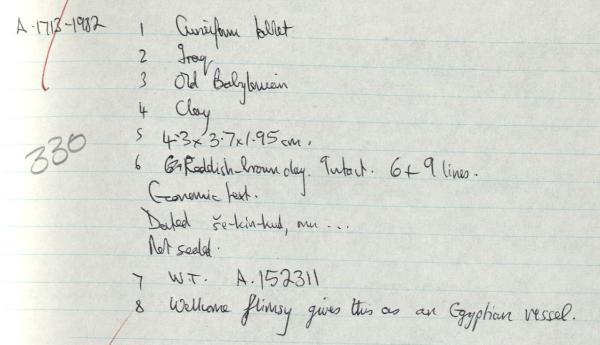 A.1713-1982 1 Cuneiform tablet
2 Iraq
3 Old Babylonian
4 Clay
5 4.3 x 3.7 x 1.95 cm.
330
6 Reddish-brown clay. Intact. 6 + 9 lines.
Economic text.
Dated še-kin-kud, mu ...
Not sealed.
7 W.T. A.152311
8 Wellcome flimsy gives this as an Egyptian vessel.